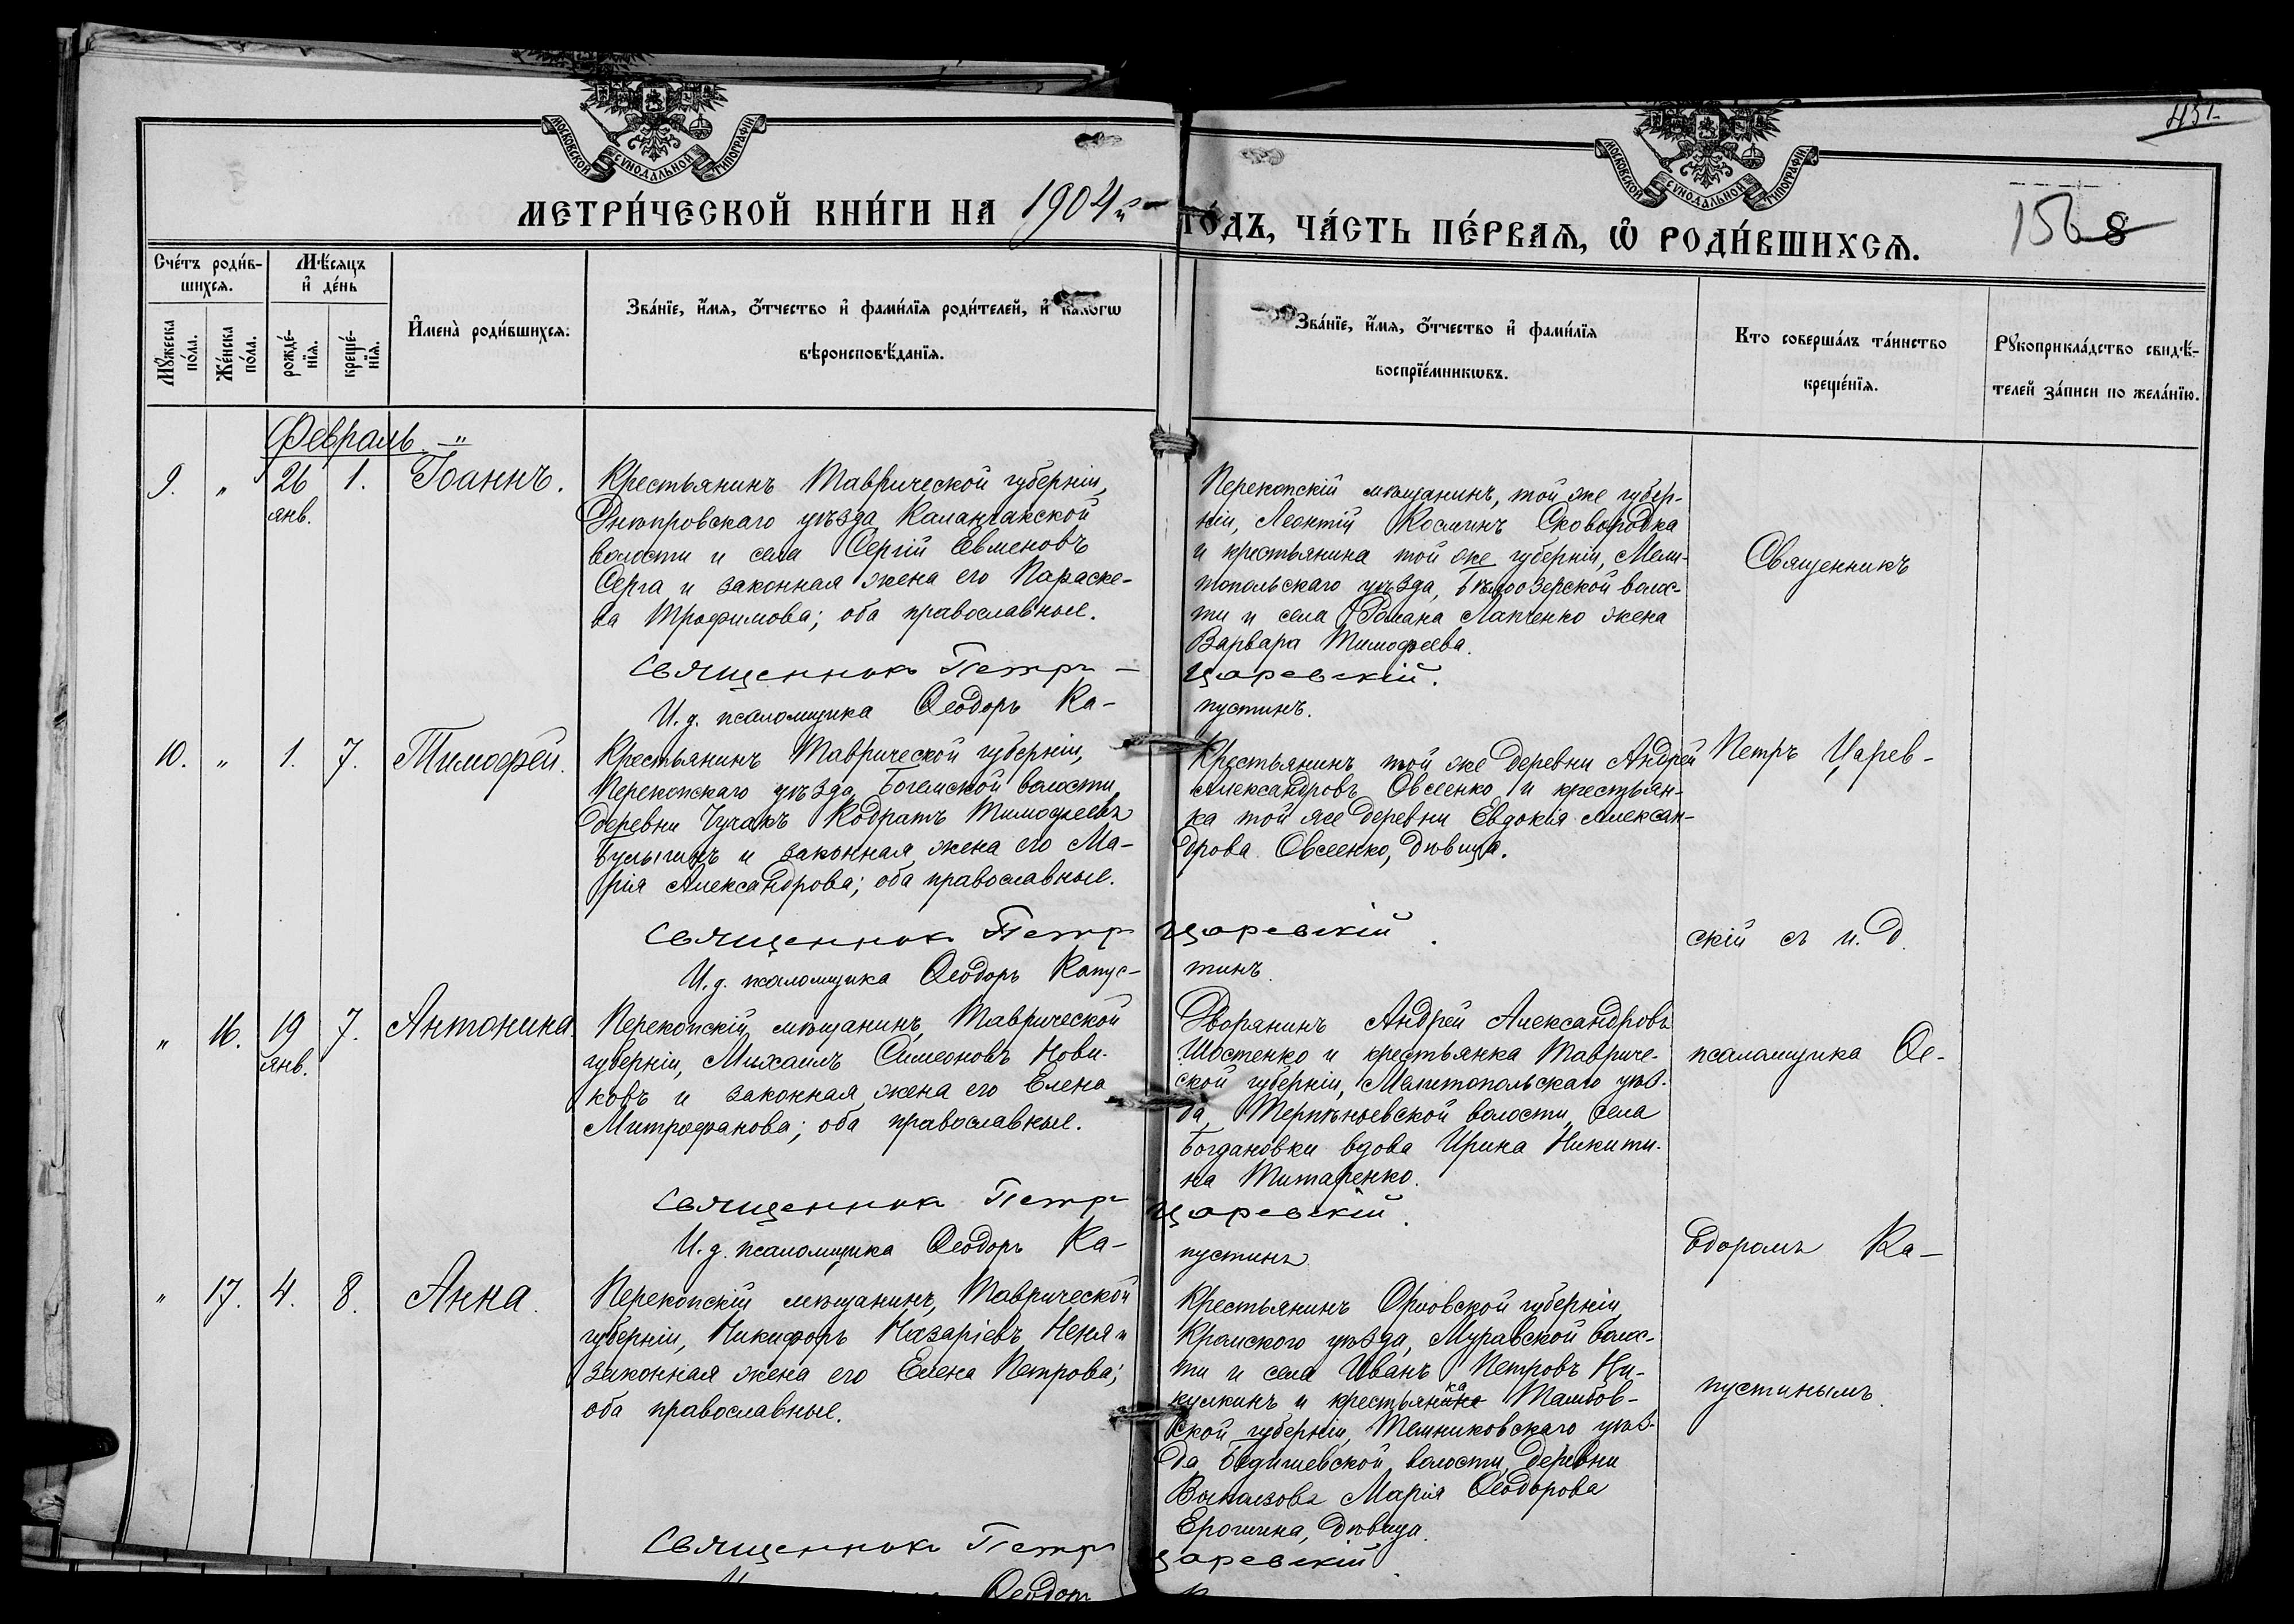 451
МОСКОВСКОЙ СѴНОДАЛЬНОЙ ТИПОГРАФІИ
МОСКОВСКОЙ СѴНОДАЛЬНОЙ ТИПОГРАФІИ
МЕТРИ́ЧЕСКОЙ КНИ́ГИ НА 1904й ГО́ДЪ, ЧА́СТЬ ПЕ́РВАѦ, Ѡ РОДИ́ВШИХСѦ.
156 8
Сче́тъ роди́в-
шихсѧ.
Мꙋ́жеска
по́ла.
Же́нска
по́ла.
Мѣ́сѧцъ
и҆ де́нь
рожде́-
нїѧ.
креще́-
нїѧ.
И҆мена̀ роди́вшихсѧ:
Зва́нїе, и҆́мѧ, ѻ҆́тчество и҆ фами́лїѧ роди́телей, и҆ како́гѡ
вѣроисповѣ́данїѧ.
Зва́нїе, и҆́мѧ, ѻ҆́тчество и҆ фами́лїѧ
воспрїе́мникѡвъ.
Кто соверша́лъ та́инство
креще́нїѧ.
Рꙋкоприкла́дство свидѣ́-
телей за́писи по жела́нїю.
Февраль "
9. " 26 1. Іоаннъ.
янв.
Крестьянинъ Таврической губерніи,
Днѣпровскаго уѣзда Каланчакской
волости и села Сергій Авменовъ
Серга и законная жена его Параске-
ва Трофимова; оба православные.
Перекопскій мѣщанинъ, той же губер-
ніи, Леонтій Косминъ Сковородка
и крестьянина той же губерніи, Мели-
топольскаго уѣзда, Бѣлоозерской волос-
ти и села Романа Лапченко жена
Варвара Тимофеева.
Священникъ
Священник Петръ Царевскій.
И.д. псаломщика Ѳеодоръ Ка-
пустинъ.
10. " 1. 7. Тимофей.
Крестьянинъ Таврической губерніи,
Перекопскаго уѣзда, Богемской волости,
деревни Чучакъ Кодратъ Тимофеевъ
Булыгинъ и законная жена его Ма-
рія Александрова; оба православные.
Крестьянинъ той же деревни Андрей
Александровъ Овсеенко и крестьян-
ка той же деревни Евдокія Алексан-
дрова Овсеенко, дѣвица.
Петръ Царев-
Священник Петр Царевскій.
И.д. псаломщика Ѳеодоръ Капус-
тинъ.
скій съ и.д.
" 16. 19 7. Антонина
янв.
Перекопскій мѣщанинъ, Таврической
губерніи, Михаилъ Симеоновъ Нови-
ковъ и законная жена его Елена
Митрофанова; оба православные.
Дворянинъ Андрей Александровъ
Шостенко и крестьянка Тавриче-
ской губерніи, Мелитопольскаго уѣз-
да, Терпѣньевской волости, села
Богдановки вдова Ирина Никити-
на Титаренко.
псаломщика Ѳе-
Священник Петръ Царевскій.
И.д. псаломщика Ѳеодоръ Ка-
пустинъ
одоромъ Ка-
" 17. 4. 8. Анна.
Перекопскій мѣщанинъ, Таврической
губерніи, Никифоръ Назаріевъ Неня и
законная жена его Елена Петрова;
оба православные.
Крестьянинъ Орловской губерніи,
Кромского уѣзда, Муравской волос-
ти и села Иванъ Петровъ Ни-
кулкинъ и крестьянка Тамбов-
ской губерніи, Темниковскаго уѣз-
да, Бедишевской волости, деревни
Марія Ѳеодорова
Ерошина, дѣвица.
пустинымъ.
Священник Петръ Царевскій.
Ѳеодоръ